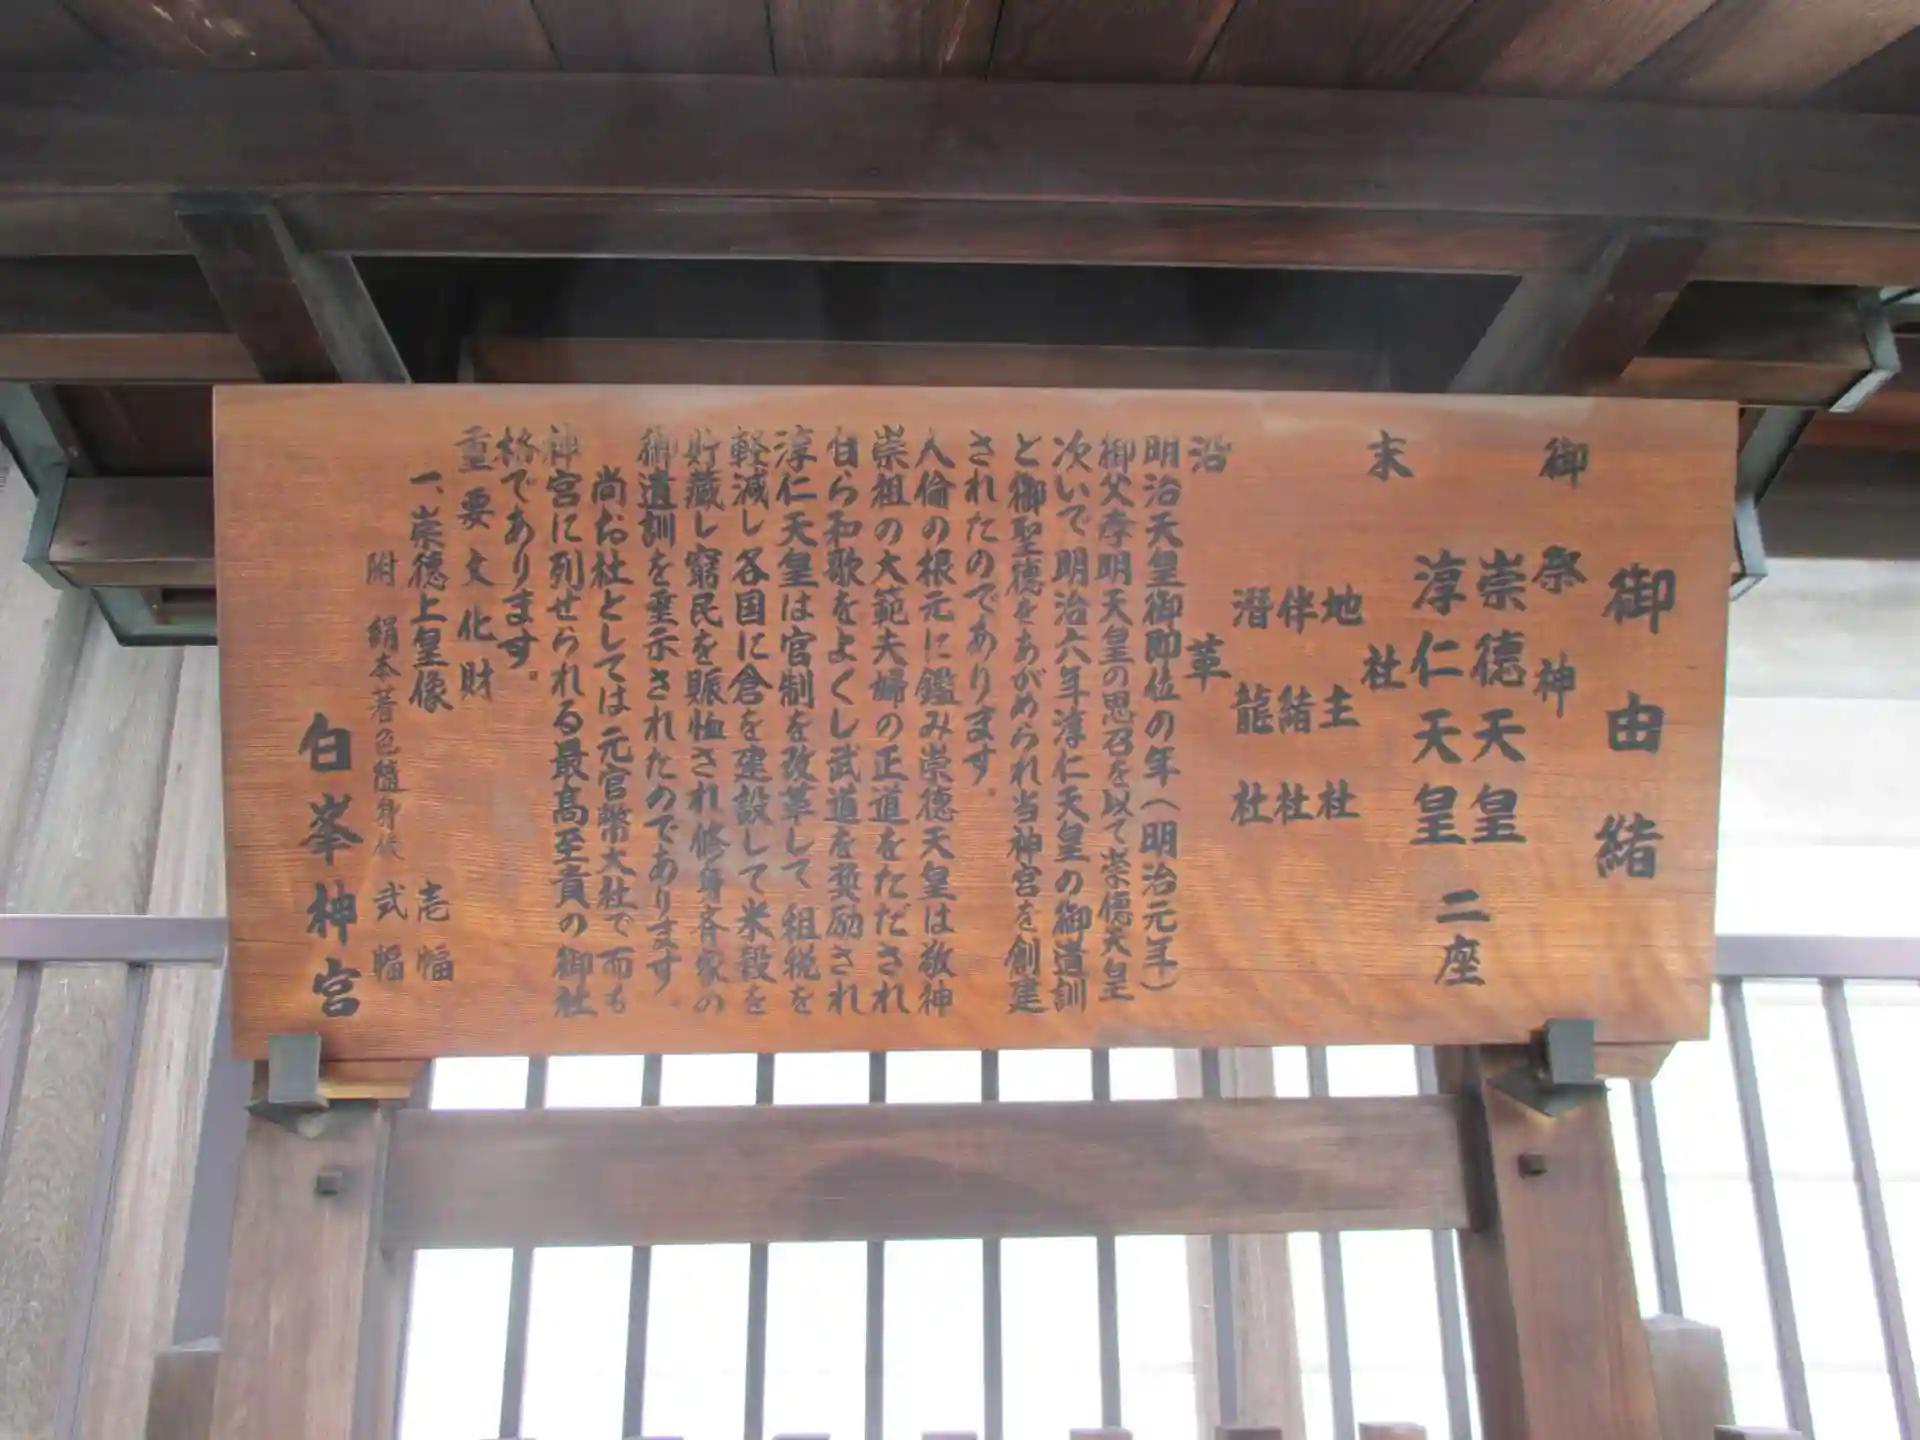 御由緒
御祭神
崇徳天皇
淳仁天皇 二座
末社
地主社
伴緒社
潜龍社
沿革
明治天皇御即位の年（明治元年）
御父孝明天皇の思召を以て崇徳天皇
次いで明治六年淳仁天皇の御道訓
と御聖徳をあがめられ当神宮を創建
されたのであります。
人倫の根元に鑑み崇徳天皇は敬神
崇祖の大範夫婦の正道をただされ
自ら和歌をよくし武道を奨励され
淳仁天皇は官制を改革して租税を
軽減し各国に倉を建設して米穀を
貯蔵し窮民を賑恤され修身斉家の
御遺訓を垂示されたのであります。
尚お社としては元官幣大社で而も
神宮に列せられる最高至貴の御社
格であります。
重要文化財
一、崇徳上皇像 壱幅
附 絹本著色随身像 弐幅
白峯神宮